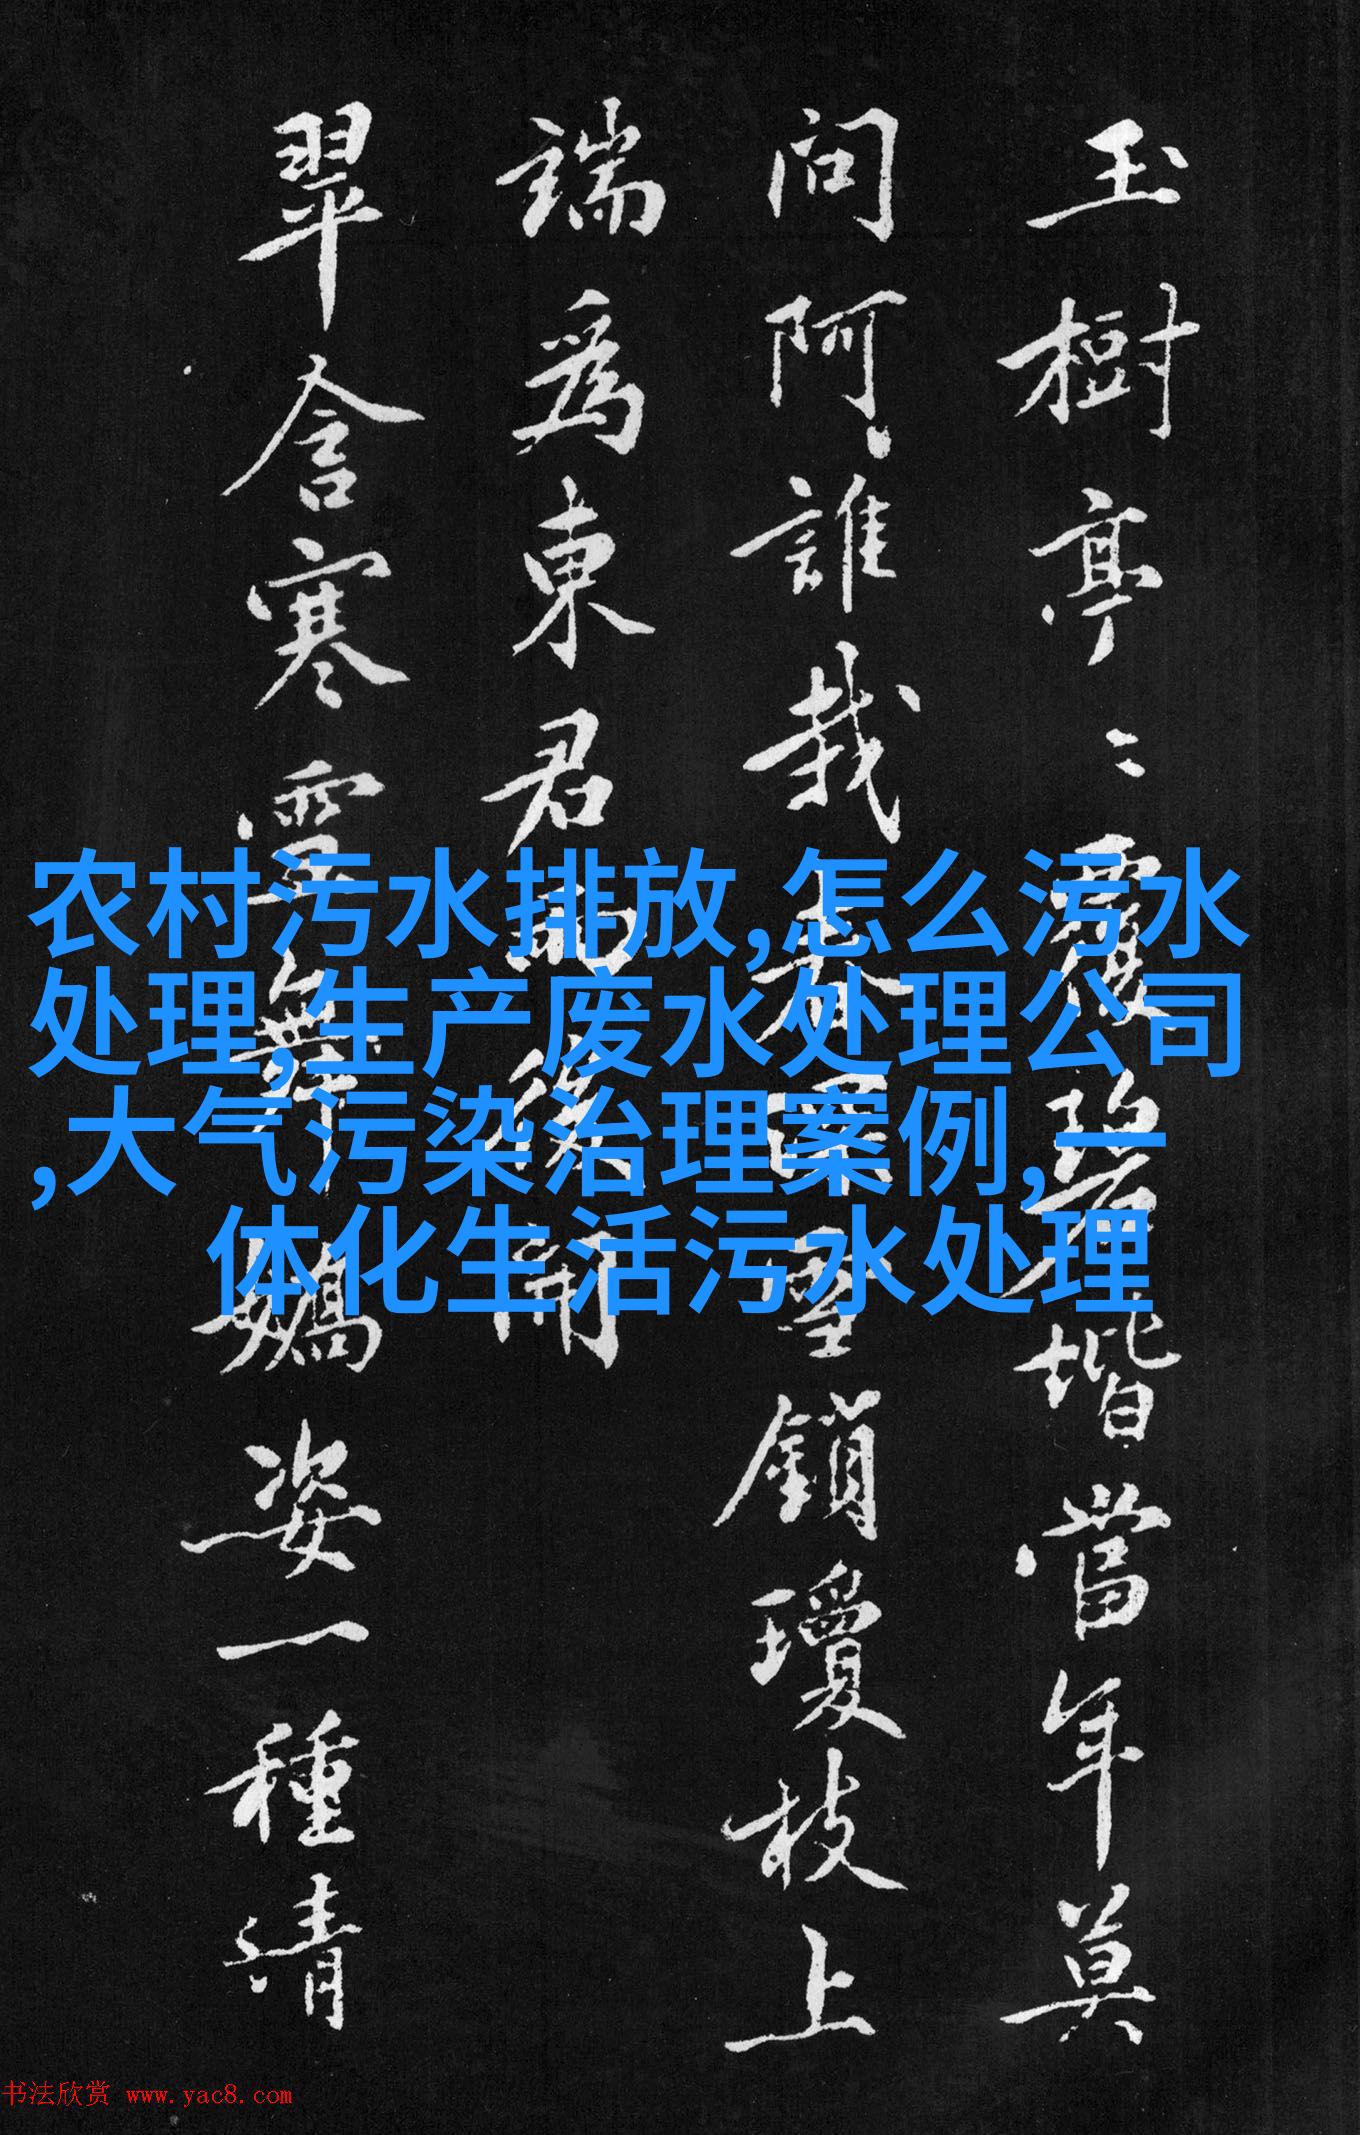 玉樹亭〻覆碧堦當年莫
問阿誰栽春深雪鎖瓊枝上
端爲東君雨後開
翠含寒雪舞嬌姿一種清
农村污水排放,怎么污水
处理,生产废水处理公司
,大气污染治理案例,一
体化生活污水处理
书法欣赏 www.yac8.com